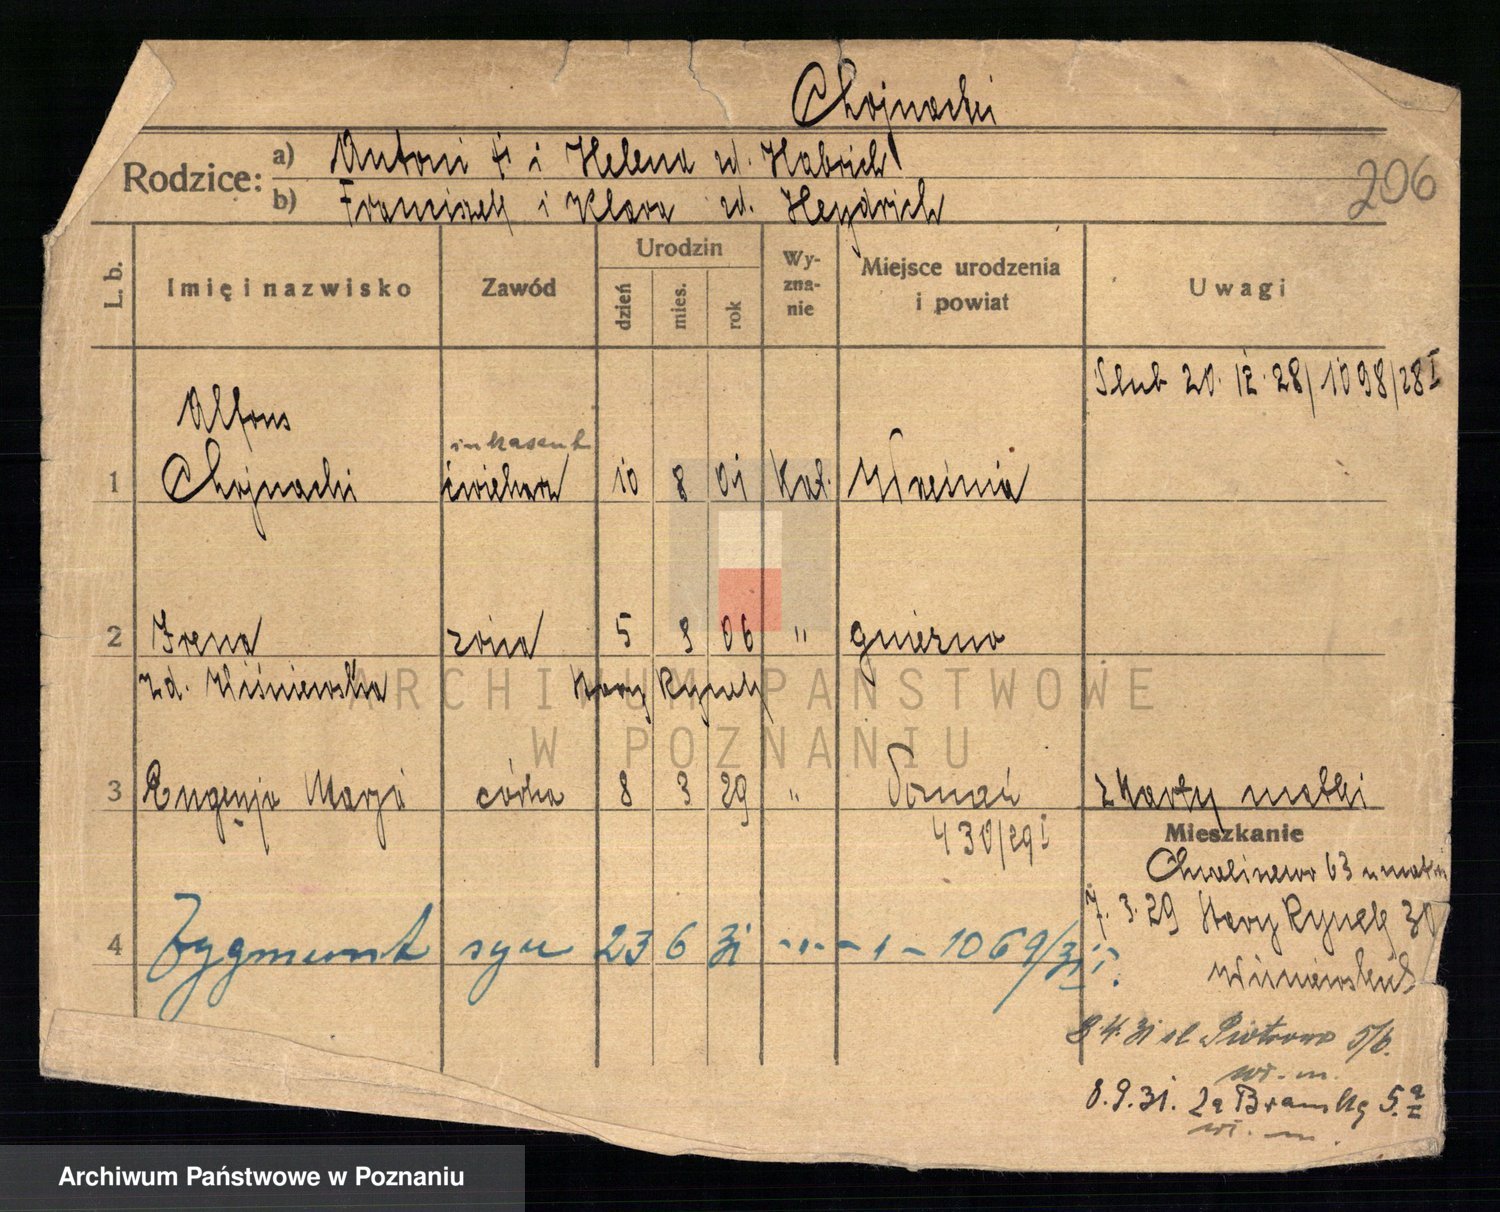 Chojnacki
206
Rodzice:
a) Antoni † i Helena zd. Habrich
b) Franciszek i Klara zd. Heydrich
L. b.
Imię i nazwisko
Zawód
Urodzin
dzień
mies.
rok
Wy-
zna-
nie
Miejsce urodzenia
i powiat
Uwagi
Ślub 20. 12. 28/1098/28 I
Alfons
inkasent
1 Chojnacki 10 8 01 kat. Września
2 Irena żona 5 9 06 " Gniezno
zd. Wiśniewska Stary Rynek
3 Eugenja Marja córka 8 3 29 " Poznań z karty matki
430/29 I
Mieszkanie
Chwaliszewo 63 u matki
7. 3. 29 Stary Rynek 30
4 Zygmunt syn 23 6 31 -"- -"- 1069/31 I.
Wiśniewskich
8.4.31 ul Piotrowo 5/6.
wł. m.
8.9.31. Za Bramką 5.
wł. m.
ARCHIWUM PAŃSTWOWE
W POZNANIU
Archiwum Państwowe w Poznaniu